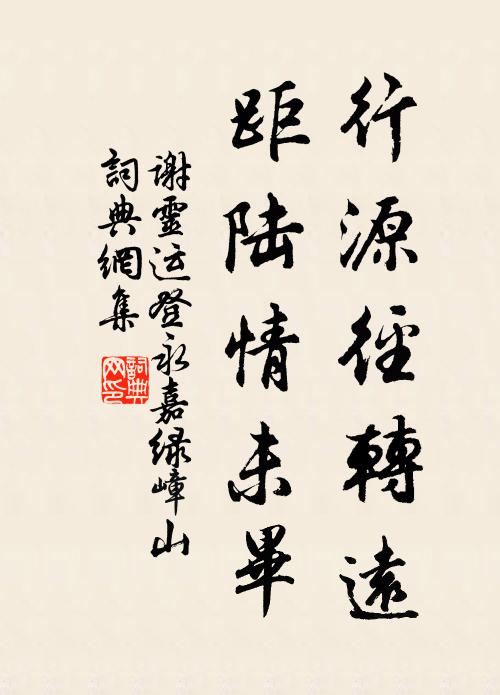 行源徑轉遠
距陆情未畢
谢靈运登永嘉绿嶂山
詞典網集
詞典网印